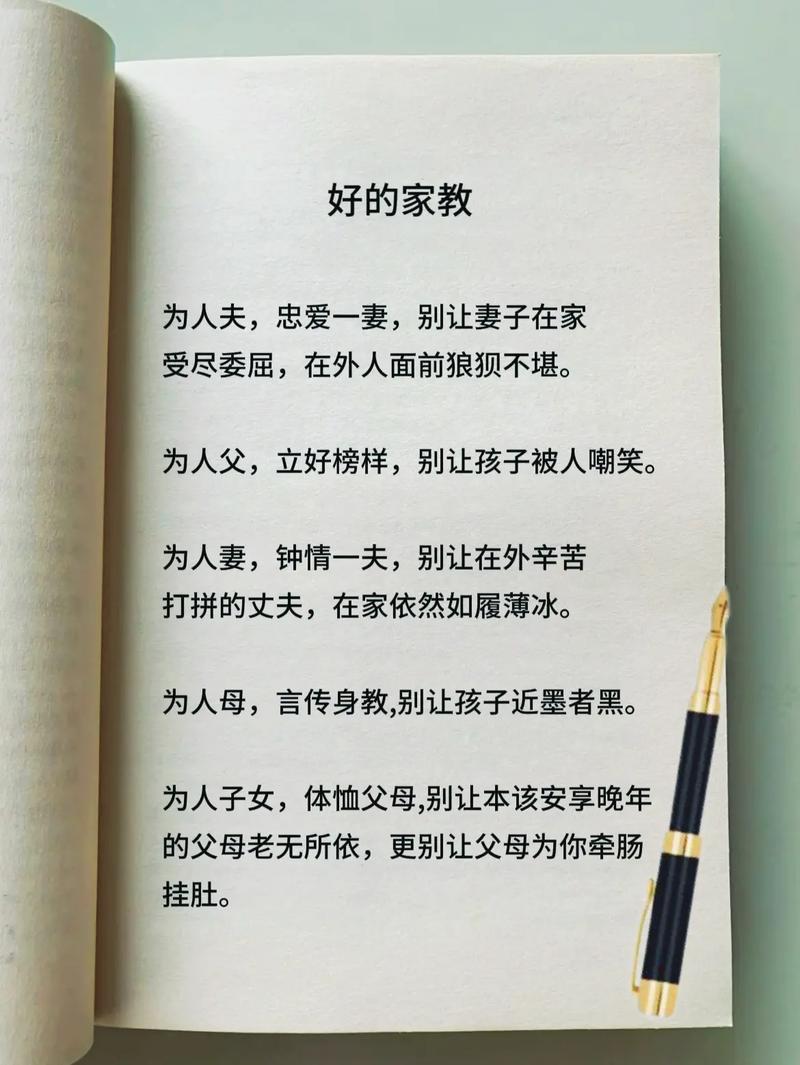 好的家教
为人夫，忠爱一妻，别让妻子在家
受尽委屈，在外人面前狼狈不堪。
为人父，立好榜样，别让孩子被人嘲笑。
为人妻，钟情一夫，别让在外辛苦
打拼的丈夫，在家依然如履薄冰。
为人母，言传身教,别让孩子近墨者黑。
为人子女，体恤父母,别让本该安享晚年
的父母老无所依，更别让父母为你牵肠
挂肚。